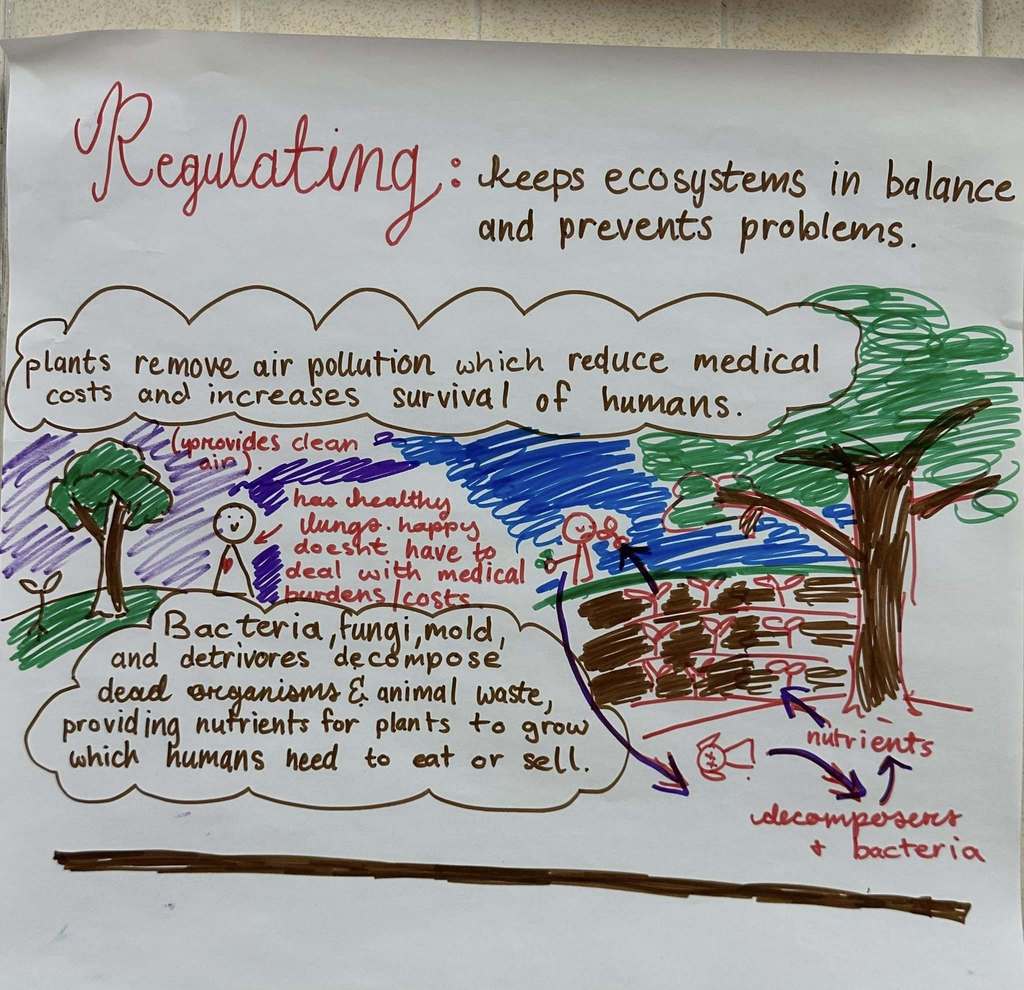 Regulating: keeps ecosystems in balance
and prevents problems.
plants remove air pollution which reduce medical
costs and increases survival of humans.
(provides clean
air).
has healthy
lungs. happy
doesnt have to
deal with medical
burdens/costs
Bacteria, fungi, mold,
and detrivores decompose
dead organisms & animal waste,
providing nutrients for plants to grow
which humans need to eat or sell.
nutrients
decomposers
+ bacteria